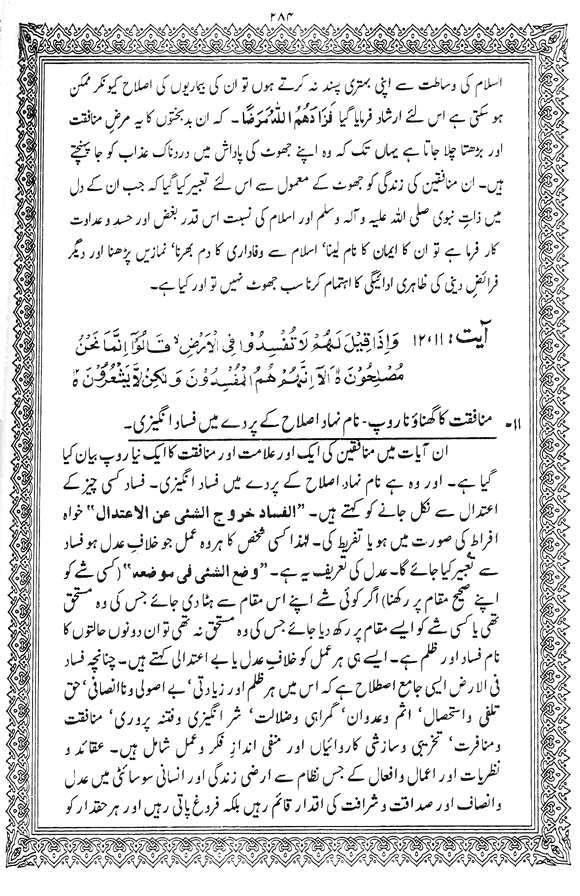 ۲۸۴
السلام کی وساطت سے اپنی بہتری پسند نہ کرتے ہوں تو ان کی بیماریوں کی اصلاح کیونکر ممکن
ہو سکتی ہے اس لئے ارشاد فرمایا گیا فَزَادَهُمُ اللّٰهُ مَرَضًا۔ کہ ان بدبختوں کا یہ مرضِ منافقت
اور بڑھتا چلا جاتا ہے یہاں تک کہ وہ اپنے جھوٹ کی پاداش میں دردناک عذاب کو جا پہنچتے
ہیں۔ ان منافقین کی زندگی کو جھوٹ کے معمول سے اس لئے تعبیر کیا گیا کہ جب ان کے دل
میں ذاتِ نبوی صلی اللہ علیہ و آلہ وسلم اور اسلام کی نسبت اس قدر بغض اور حسد و عداوت
کار فرما ہے تو ان کا ایمان کا نام لینا، اسلام سے وفاداری کا دم بھرنا، نمازیں پڑھنا اور دیگر
فرائضِ دینی کی ظاہری ادائیگی کا اہتمام کرنا سب جھوٹ نہیں تو اور کیا ہے۔
آیت: ۱۱، ۱۲ وَاِذَا قِيْلَ لَهُمْ لَا تُفْسِدُوْا فِى الْاَرْضِ ۙ قَالُوْٓا اِنَّمَا نَحْنُ
مُصْلِحُوْنَ ہ اَلَآ اِنَّهُمْ هُمُ الْمُفْسِدُوْنَ وَلٰكِنْ لَّا يَشْعُرُوْنَ ہ
۱۱۔ منافقت کا گھناؤنا روپ۔ نام نہاد اصلاح کے پردے میں فساد انگیزی۔
ان آیات میں منافقین کی ایک اور علامت اور منافقت کا ایک نیا روپ بیان کیا
گیا ہے۔ اور وہ ہے نام نہاد اصلاح کے پردے میں فساد انگیزی۔ فساد کسی چیز کے
اعتدال سے نکل جانے کو کہتے ہیں۔ ”الفساد خروج الشئى عن الاعتدال“ خواہ
افراط کی صورت میں ہو یا تفریط کی۔ لہٰذا کسی شخص کا ہر وہ عمل جو خلافِ عدل ہو فساد
سے تعبیر کیا جائے گا۔ عدل کی تعریف یہ ہے۔ ”وضع الشئى فى موضعه“ (کسی شے کو
اپنے صحیح مقام پر رکھنا) اگر کوئی شے اپنے اس مقام سے ہٹا دی جائے جس کی وہ مستحق
تھی یا کسی شے کو ایسے مقام پر رکھ دیا جائے جس کی وہ مستحق نہ تھی تو ان دونوں حالتوں کا
نام فساد اور ظلم ہے۔ ایسے ہی ہر عمل کو خلافِ عدل یا بے اعتدالی کہتے ہیں۔ چنانچہ فساد
فی الارض ایسی جامع اصطلاح ہے کہ اس میں ہر ظلم اور زیادتی، بے اصولی و ناانصافی، حق
تلفی و استحصال، اثم و عدوان، گمراہی و ضلالت، شر انگیزی و فتنہ پروری، منافقت
و منافرت، تخریبی و سازشی کاروائیاں اور منفی اندازِ فکر و عمل شامل ہیں۔ عقائد و
نظریات اور اعمال و افعال کے جس نظام سے ارضی زندگی اور انسانی سوسائٹی میں عدل
و انصاف اور صداقت و شرافت کی اقدار قائم رہیں بلکہ فروغ پاتی رہیں اور ہر حقدار کو